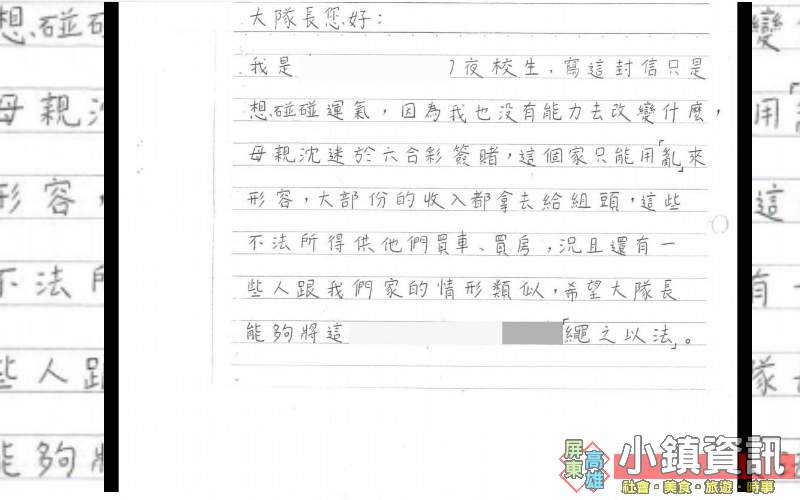 大隊長您好：
我是 夜校生，寫這封信只是
想碰碰運氣，因為我也沒有能力去改變什麼，
母親沈迷於六合彩簽賭，這個家只能用「亂」來
形容，大部份的收入都拿去給組頭，這些
不法所得供他們買車、買房，況且還有一
些人跟我們家的情形類似，希望大隊長
能夠將這 「繩之以法」。
屏東 高雄
小鎮資訊
社會・美食・旅遊・時事